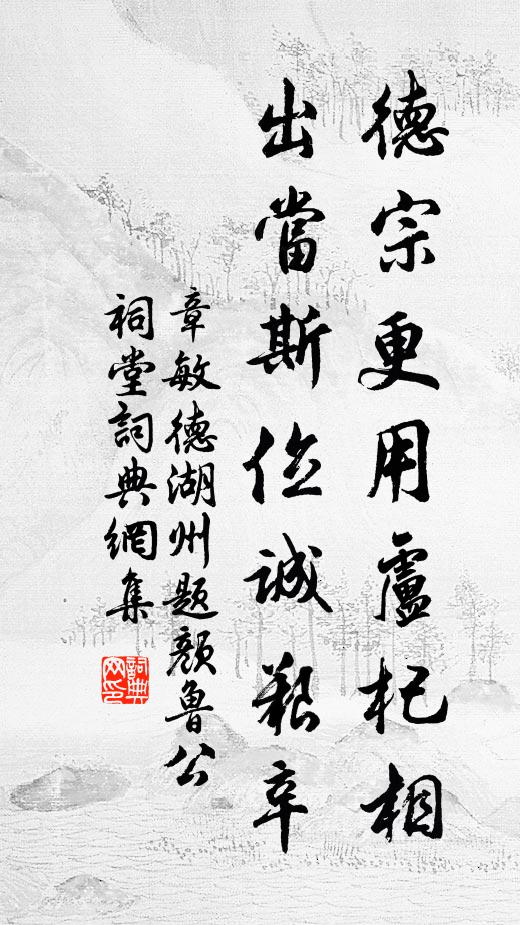 德宗更用盧杞相
出當斯位誠艱辛
章敏德湖州題顏魯公
祠堂詞典網集
詞典网印